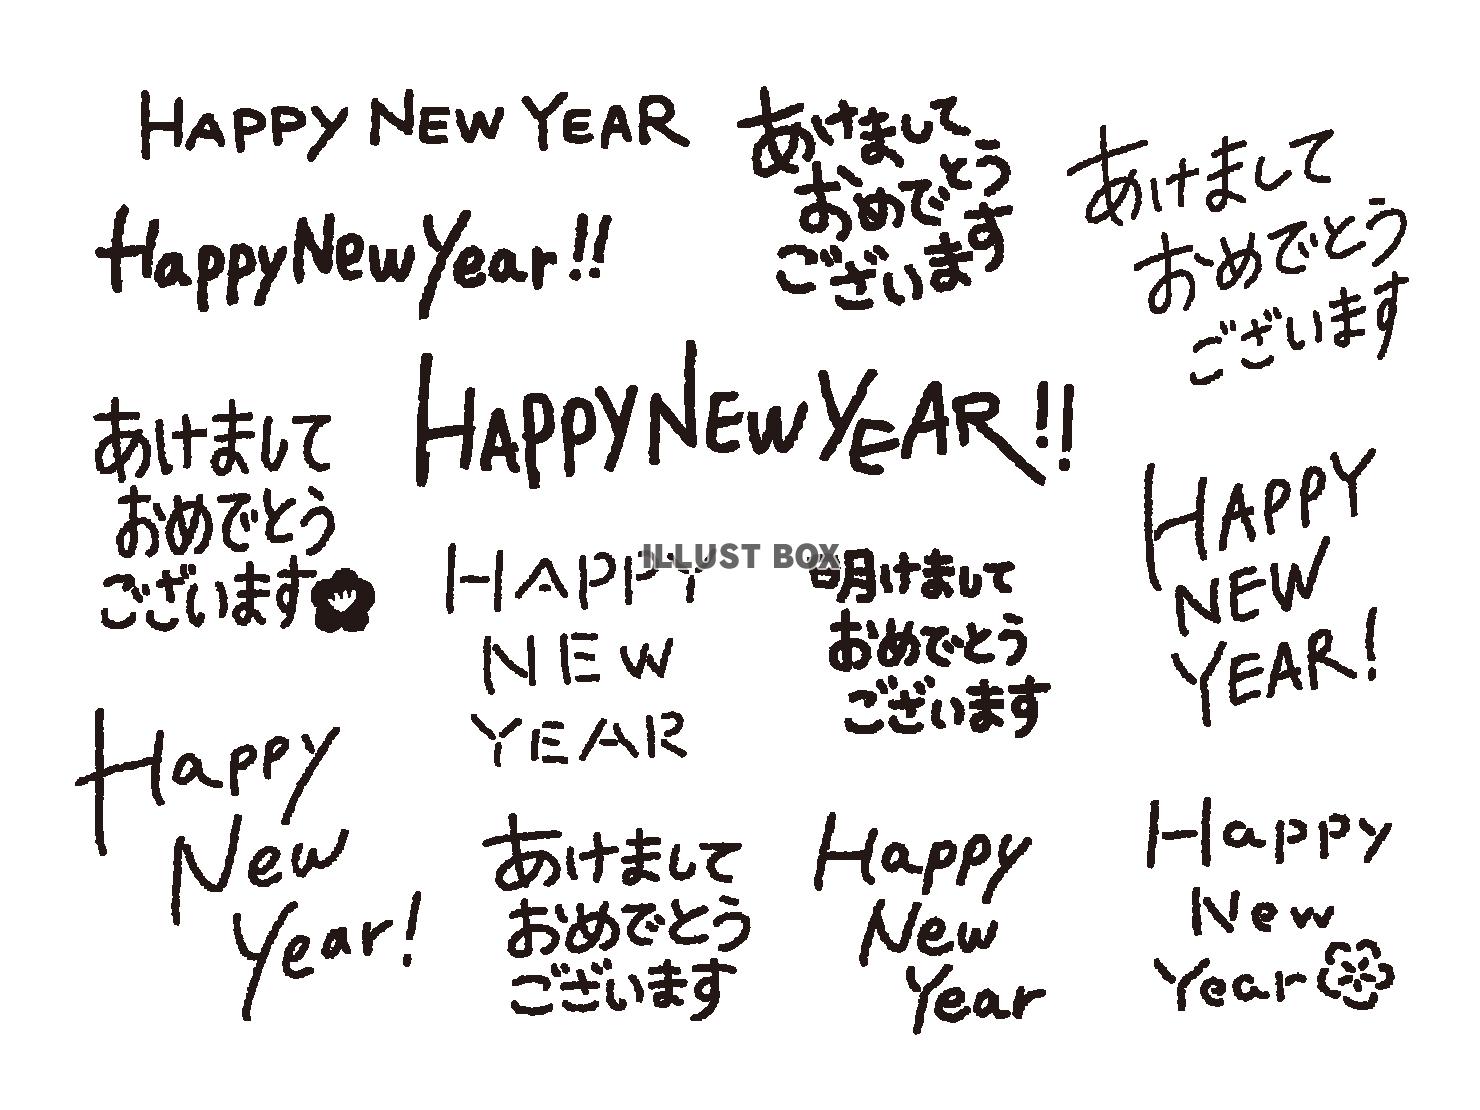 HAPPY NEW YEAR
Happy New Year!!
あけまして
おめでとう
ございます
あけまして
おめでとう
ございます
HAPPY NEW YEAR!!
あけまして
おめでとう
ございます
HAPPY
NEW
YEAR!
ILLUST BOX
HAPPY
NEW
YEAR
明けまして
おめでとう
ございます
Happy
New
Year!
あけまして
おめでとう
ございます
Happy
New
Year
Happy
New
Year